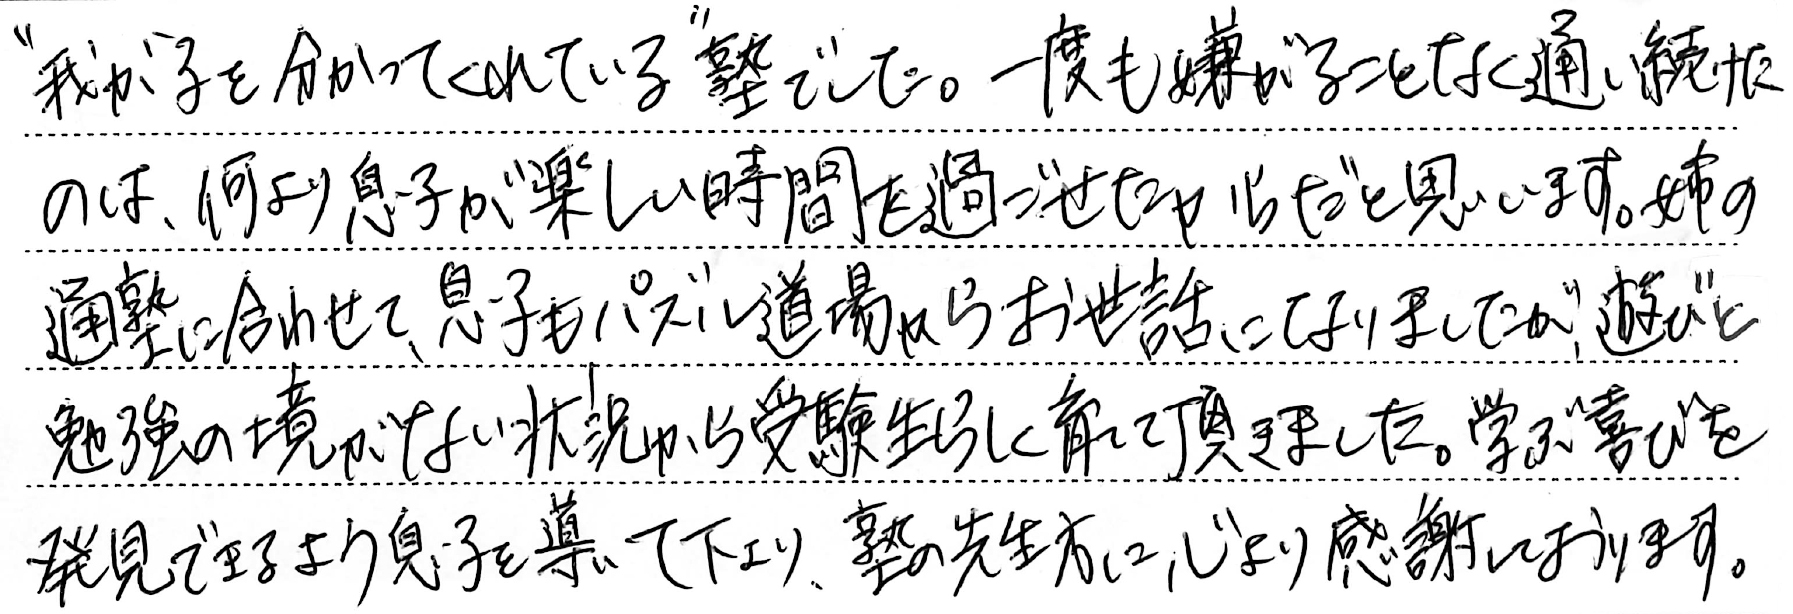 "我が子を分かってくれている"塾でした。一度も嫌がることなく通い続けた
のは、何より息子が楽しい時間を過ごせたからだと思います。姉の
通塾に合わせて、息子もパズル道場からお世話になりましたが、遊びと
勉強の境がない状況から受験生らしく育てて頂きました。学ぶ喜びを
発見できるよう息子を導いて下さり、塾の先生方に心より感謝しております。